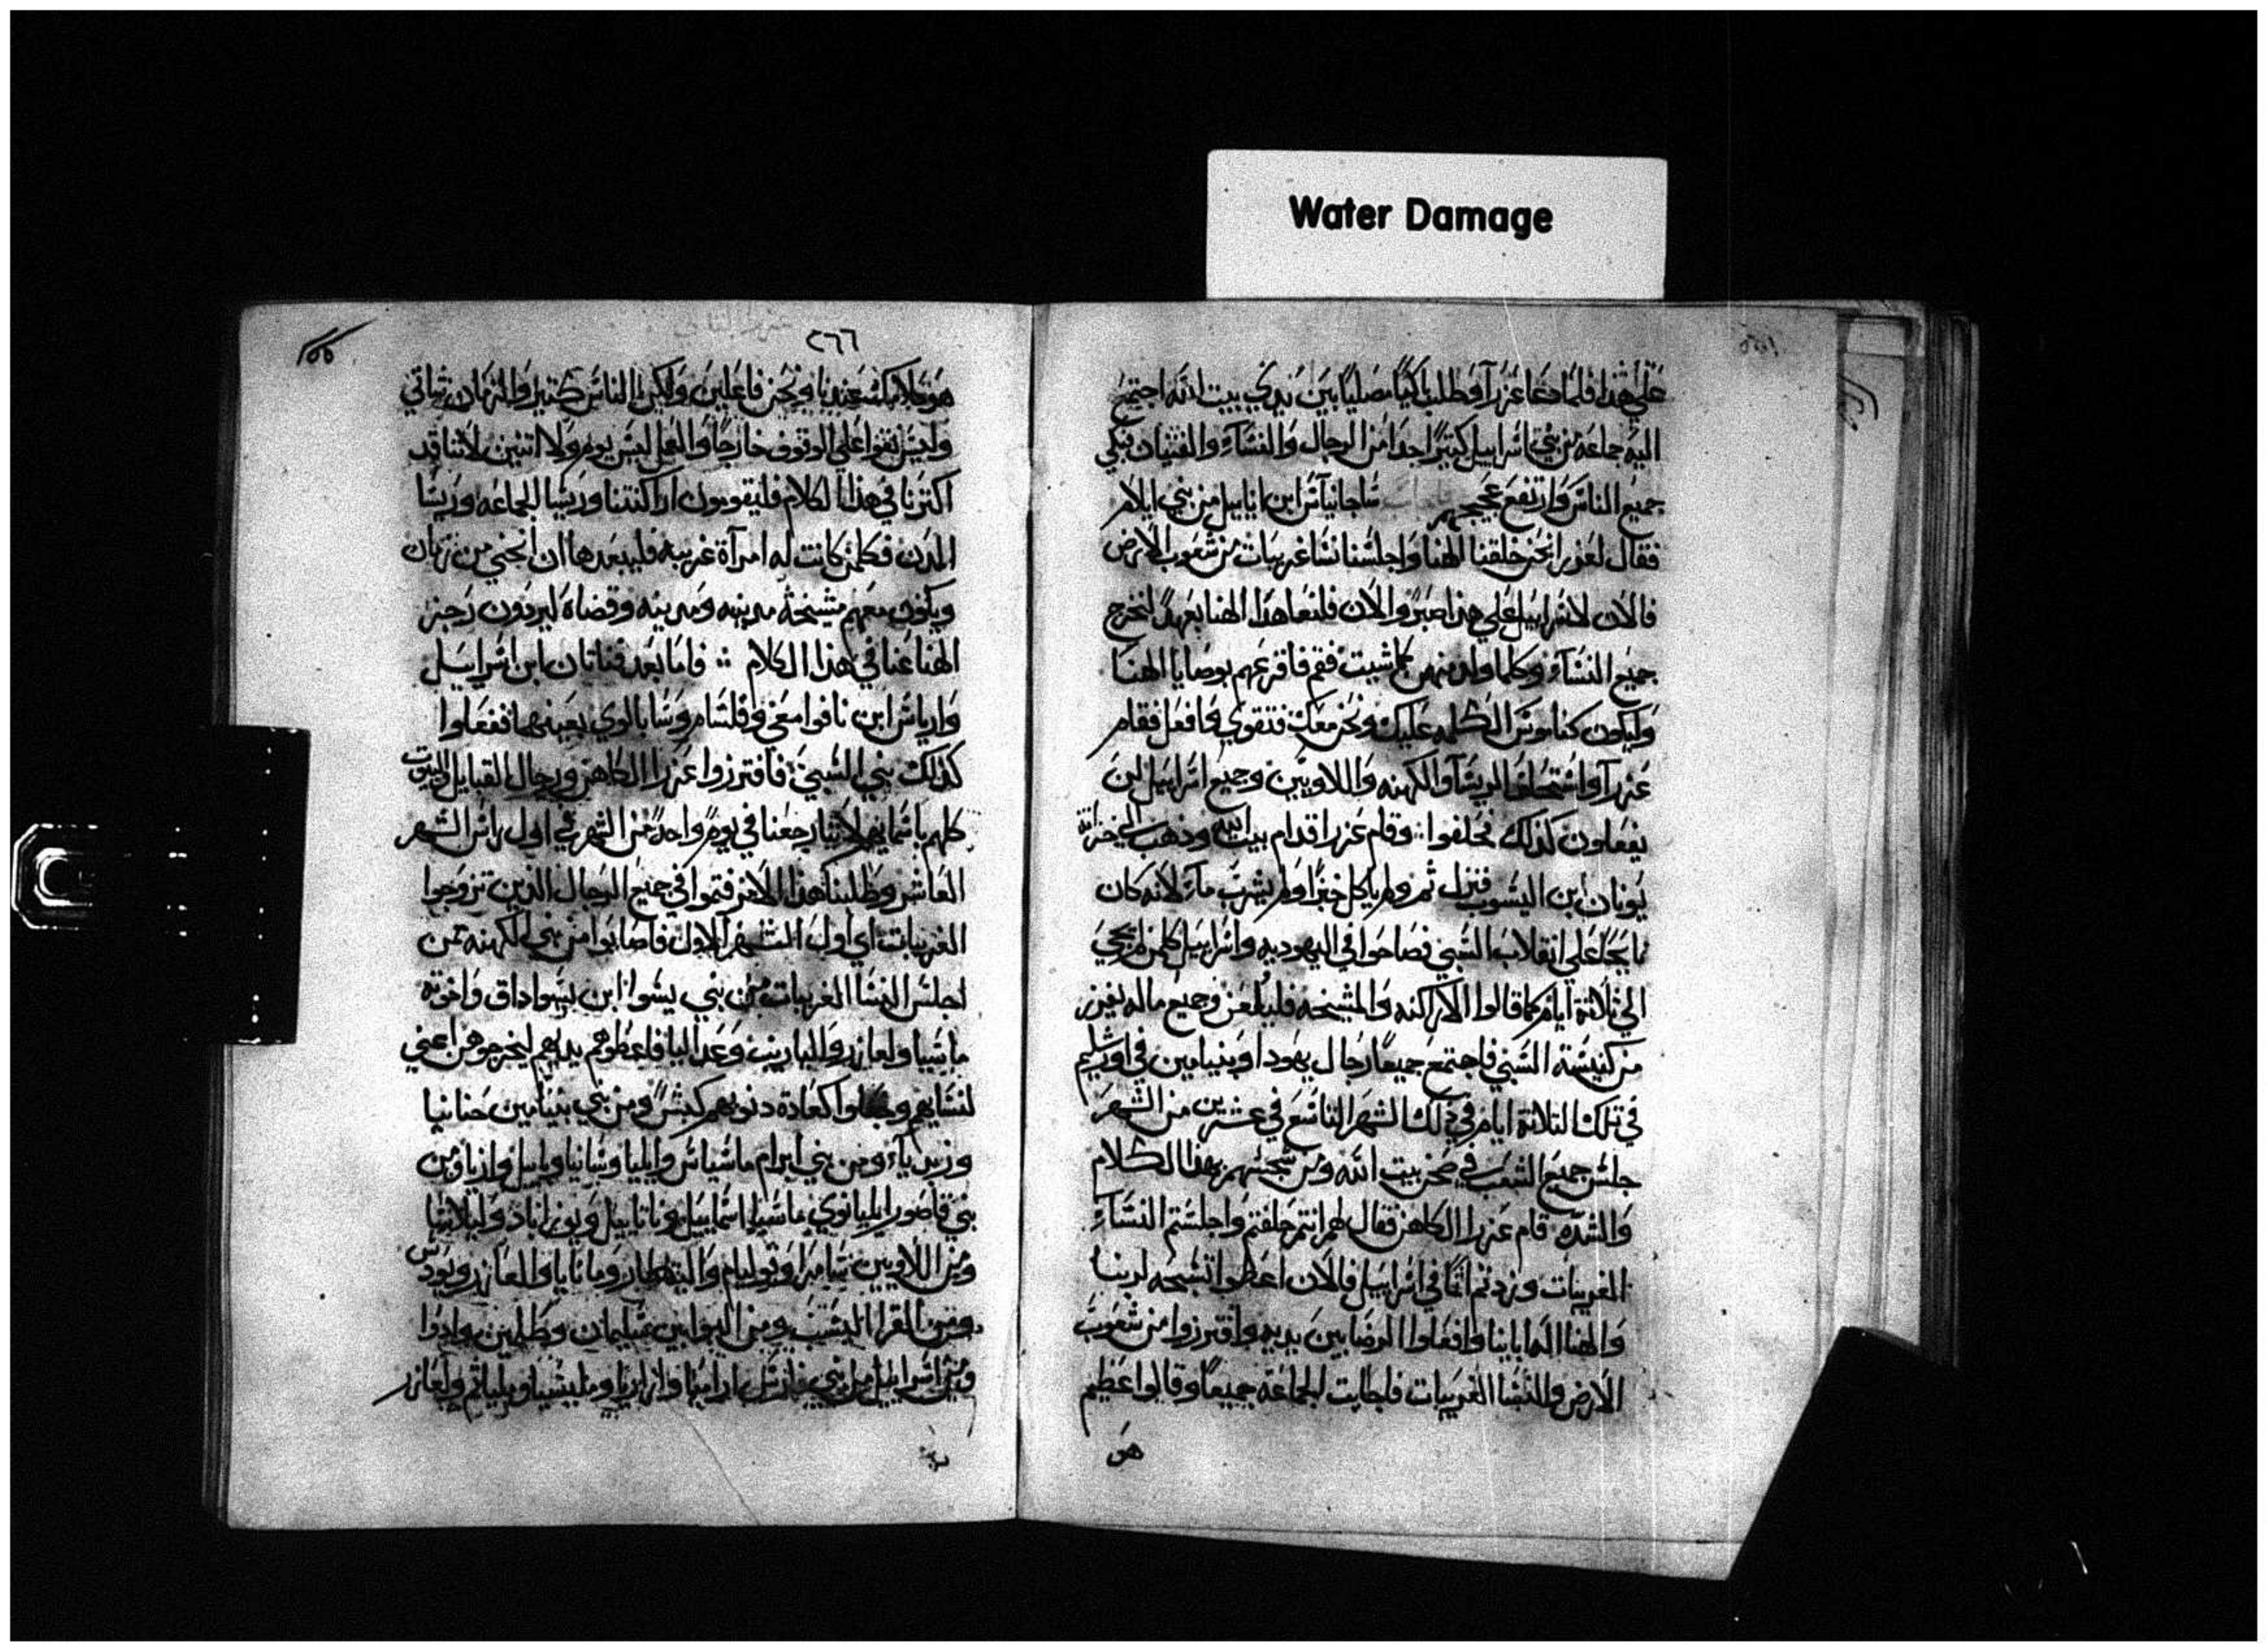 Water Damage
علي هذا فلما دعا عزرا وطلب باكيا مصليا بين يدي بيت الله اجتمع
اليه جماعه من بني اسراييل كتيرا جدا من الرجال والنساء والفتيان فبكي
جميع الناس وارتفع عجيجهم اجاب شاجانياس ابن اناييل من بني ايلام
فقال لعزرا نحن خلفنا الهنا واجلسنا نسا غريبات من شعوب الارض
فالان لاسراييل علي هذا صبر والان فلنعاهد الهنا بعهد لنخرج
جميع النساء وكلما ولد منهن كما شيت فقم فاقرعهم بوصايا الهنا
وليكون كناموس الكلمه عليك ونحن معك فتقوي وافعل فقام
عزرا واستحلف الريسا والكهنه واللاويين وجميع اسراييل لن
يفعلون كذلك فحلفوا وقام عزرا قدام بيت الله وذهب الي خزانة
يونان ابن اليسوب فنزل ثم ولم ياكل خبزا ولم يشرب ماء لانه كان
نايحا علي انقلاب السبي فصاحوا في اليهوديه واسراييل كلمن لم يجي
الي ثلاثة ايام كما قالوا الاراكنه والمشيخه فليلعن وجميع ماله يفرز
من كنيسة السبي فاجتمع جميعا رجال يهودا وبنيامين في اورشليم
في تلك التلاتة ايام في ذلك الشهر التاسع في عشرين من الشهر
جلس جميع الشعب في صحن بيت الله ومن محبتهم بهذا الكلام
والشده قام عزرا الكاهن فقال لهم انتم خلفتم واجلستم النساء
الغريبات وزدتم اثما في اسراييل فالان اعطوا تسبحه لربنا
والهنا اله ابانا وافعلوا الرضا بين يديه وافترزوا من شعوب
الارض والنسا الغريبات فاجابت الجماعة جميعا وقالوا عظيم
هو
٢٦٦
هو كلامك عندنا ونحن فاعلين ولكن الناس كتير والزمان شاتي
وليس نقوا علي الوقوف خارجا والعمل ليس يوم ولا اتنين لاننا قد
اكترنا في هذا الكلام فليقومون اراكنتنا وريسا الجماعه وريسا
المدن فكلمن كانت له امراة غريبه فليبعدها ان انجي من زمان
ويكون معهم مشيخة مدينه ومدينه وقضاة ليردون رجز
الهنا عنا في هذا الكلام ؞ فاما بعد فناتان ابن اسراييل
وارياس ابن نافوا معي وفلشام وسابالوي يعينهما ففعلوا
كذلك بني السبي فافترزوا عزرا الكاهن ورجال القبايل والبيوت
كلهم باسمايهم لاننا رجعنا في يوم واحد من الشهر في اول راس الشهر
العاشر وطلبنا هذا الامر فتموا في جميع الرجال الذين تزوجوا
الغريبات اي اول الشهر الاول فاصابوا من بني الكهنه من
اجلس النسا الغريبات من بني يسوا ابن يسواداق واخوته
ماسيا ولعازر والياريب وعداليا فاعطوهم يديهم ليخرجوهن اعني
لنسايهم وجعلوا كعادة دنوبهم كبش ومن بني بنيامين حنانيا
وزبدياء ومن بني ايرام ماسياس وايليا وسانيا وياييل وازيا ومن
بني فاصور ايليانوي ماسيا اسماييل وناتاييل ويوزاباد وليلاسيا
ومن اللاويين سامرا وقوليام والتهطار وماتايا والعازر ويودس
ومن القرا اليشب ومن البوابين سليمان وطلمين وادوا
ومن اسراييل من بني فارس ارميا وازاريا ومليشيا ومليانم ولعازر